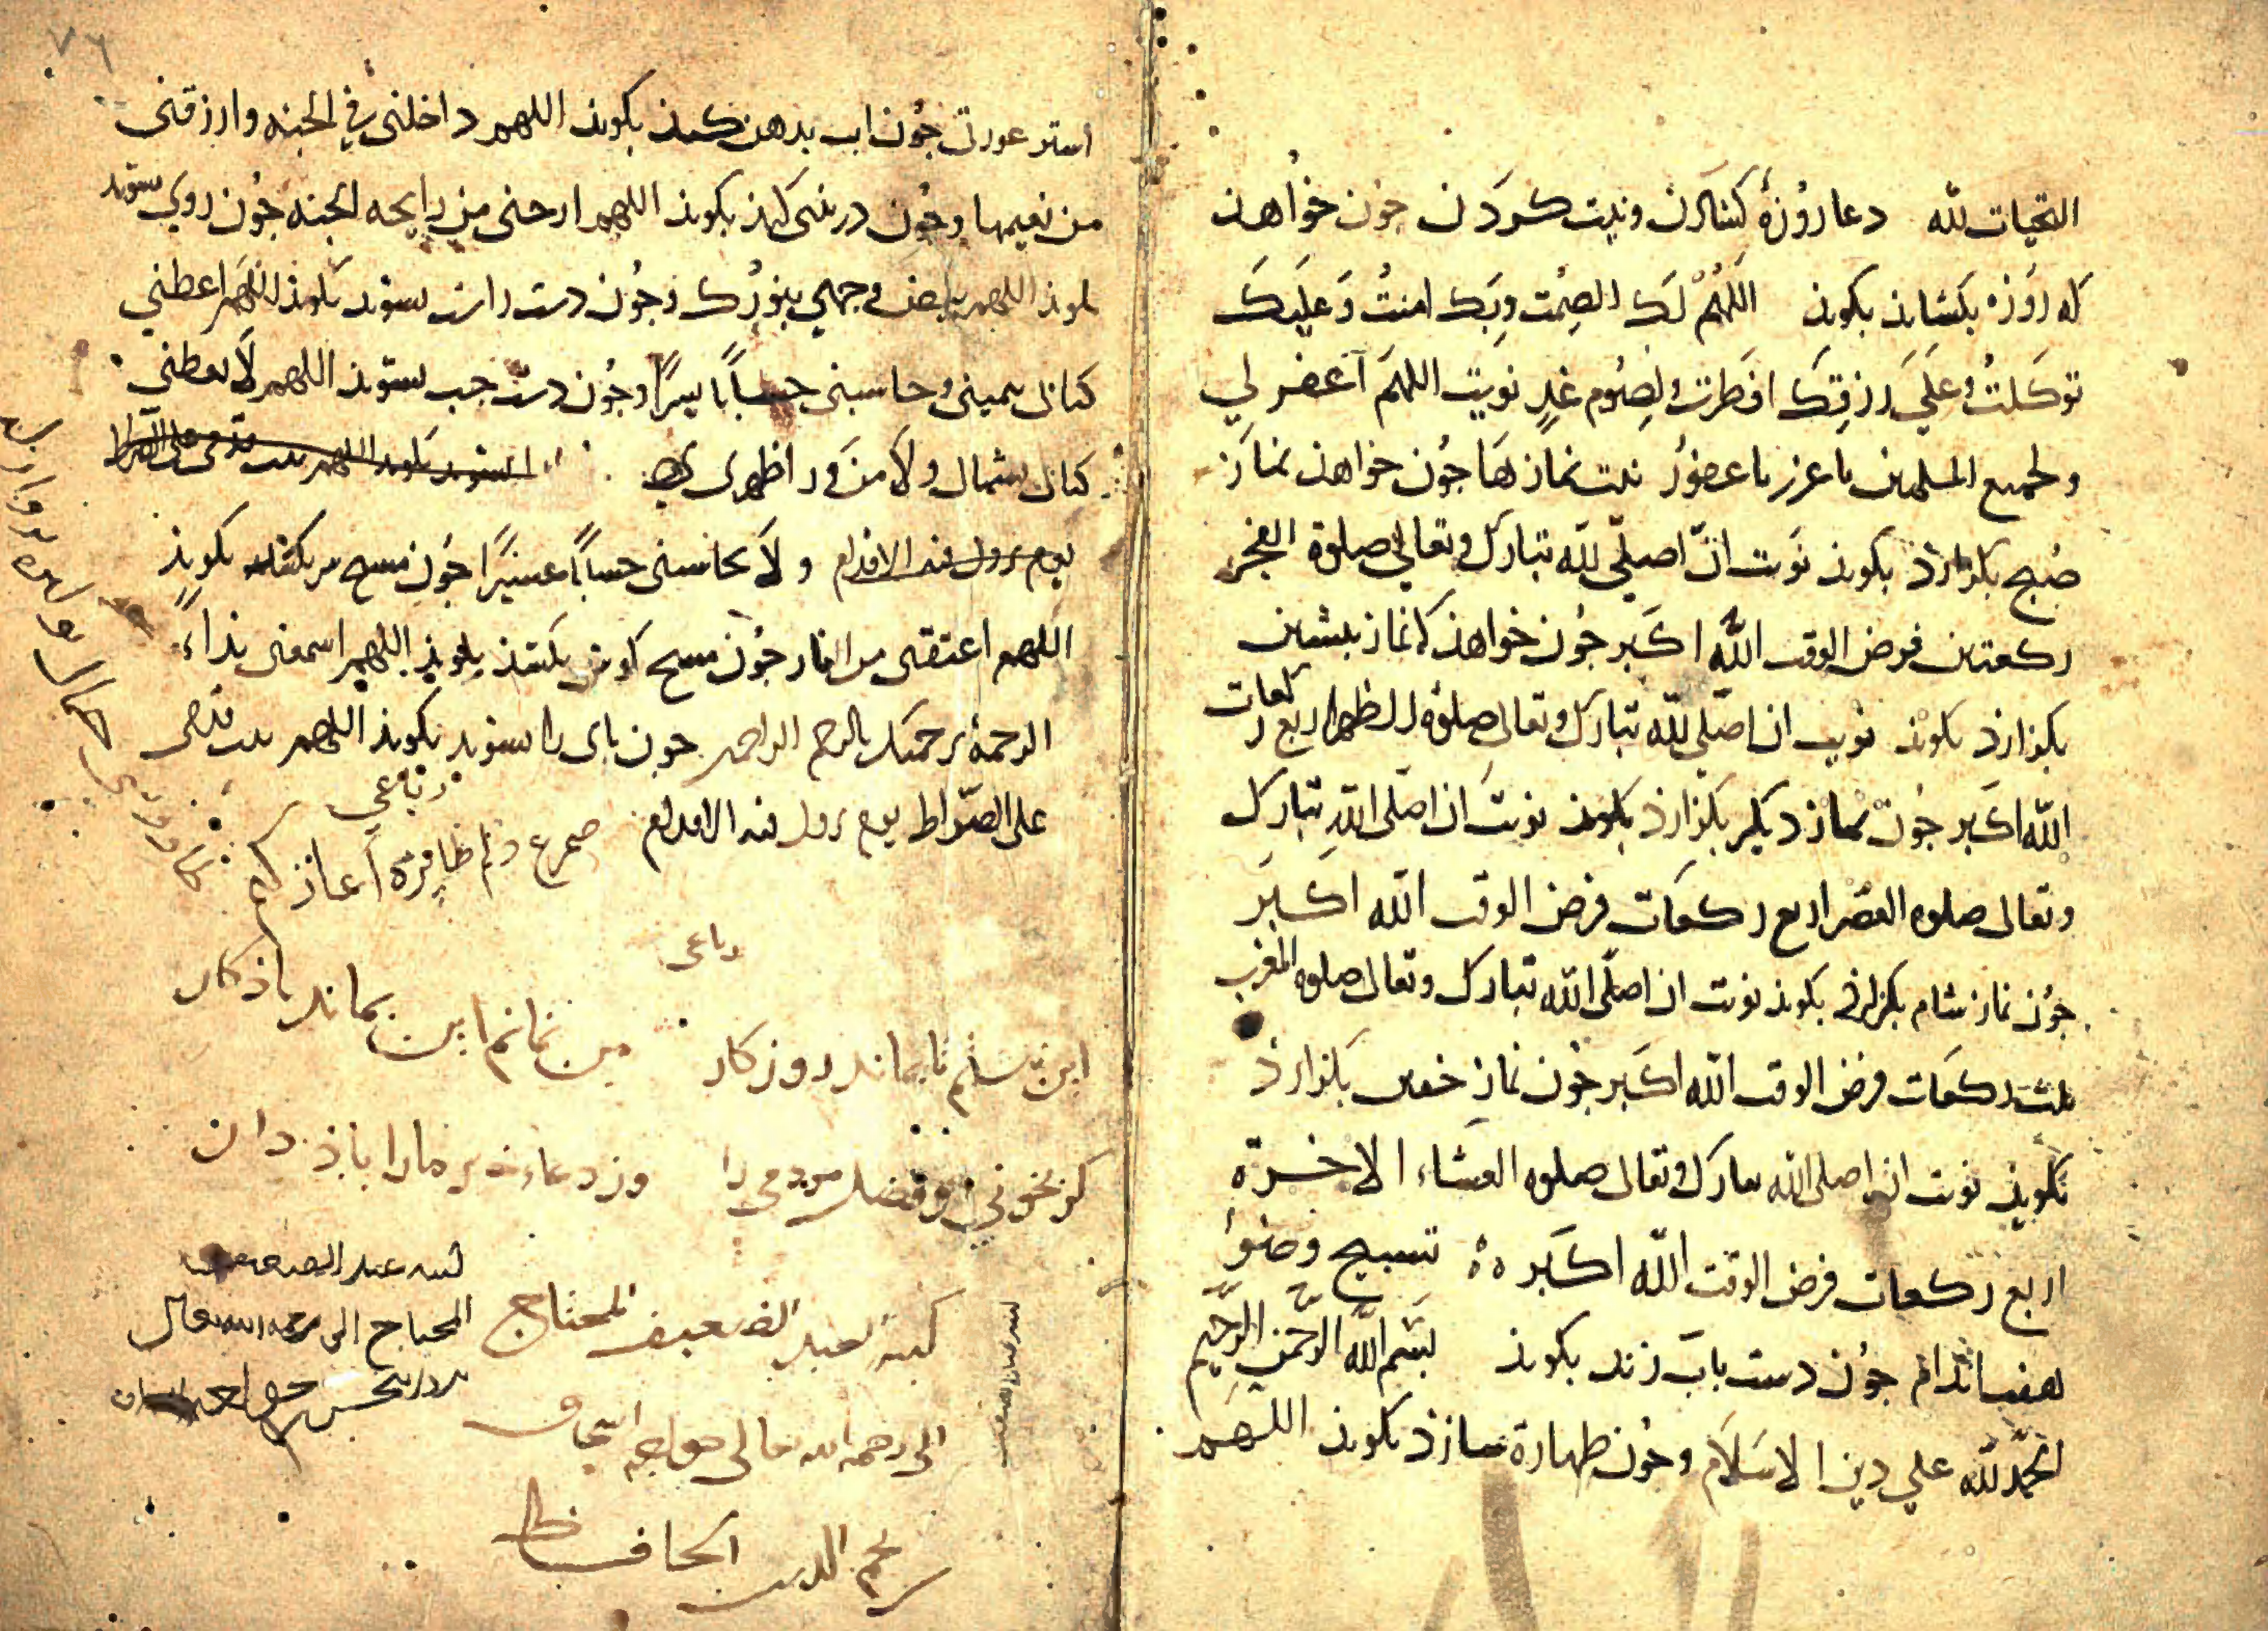 التحیات لله دعا روزۀ کشاذن ونیت کردن جون خواهذ
که روزه بکشاند بکوید اللهم لک الصمت وبک امنت وعلیک
توکلت وعلی رزقک افطرت ولصوم غد نویت اللهم آغفر لی
ولجمیع المسلمین یا عزیز یا غفور نیت نماز ها جون خواهذ نماز
صبح بکزارذ بکوید نویت ان اصلی لله تبارک وتعالی صلوة الفجر
رکعتین فرض الوقت الله اکبر جون خواهذ که نماز بیشین
بکزارذ بکوید نویت ان اصلی لله تبارک وتعالی صلوة الظهر اربع رکعات
الله اکبر جون نماز دیکر بکزارذ بکوید نویت ان اصلی الله تبارک
وتعالی صلوه العصر اربع رکعات فرض الوقت الله اکبر
جون نماز شام بکزارذ بکوید نویت ان اصلی الله تبارک وتعالی صلوه المغرب
ثلث رکعات فرض الوقت الله اکبر جون نماز خفتن بکزارذ
بکوید نویت ان اصلی الله تبارک وتعالی صلوه العشاء الاخرة
اربع رکعات فرض الوقت الله اکبر تسبیح وضوء
هفت اندام جون دست باب زند بکوید بسم الله الرحمن الرحیم
الحمد لله علی دین الاسلام وجون طهارة سازذ بکوید اللهم
٧٦
استر عورتی جون اب بدهن کند بکوید اللهم داخلنی فی الجنه وارزقنی
من نعیمها وجون در بینی کند بکوید اللهم ارحنی من رایحه الجنه جون روی شوید
بکوید اللهم بیض وجهی بنورک وجون دست راست بشوید بکوید اللهم اعطنی
کتابی بیمینی وحاسبنی حسابا یسیرا وجون دست جب بشوید اللهم لا تعطنی
کتابی بشمالی ولا من ورا ظهری
یوم تزول فیه الاقدام ولا تحاسبنی حسابا عسیرا جون مسح سر بکشد بکوید
اللهم اعتقنی من النار جون مسح کوش بکشذ بکوید اللهم اسمعنی نداء
الرحمة برحمتک یا ارحم الراحمین جون بای را بشوید بکوید اللهم ثبت قدمی
علی الصراط یوم تزول فیه الاقدام
رباعی
رباعی
این نبشتم تا بماند روزکار من نمانم این بماند یاذکار
کتبه العبد الضعیف المحتاج
الی رحمة الله تعالی خواجه اسحاق
نجم الدین الحافظ
المحتاج الی رحمه الله تعالی